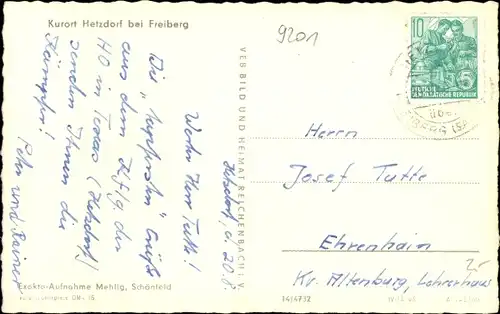 Kurort Hetzdorf bei Freiberg
9201
Hetzdorf, d. 20.8.
Werter Herr Tutte!
Die "herzlichsten" Grüße
aus dem
HO in (Hetzdorf)
senden Ihnen die
Kämpfer!
Peter und Rainer
Exakta-Aufnahme Mehlig, Schönfeld
VEB BILD UND HEIMAT REICHENBACH i. V.
14/4732
10
DEUTSCHE
DEMOKRATISCHE REPUBLIK
5
Herrn
Josef Tutte
Ehrenhain
Kr. Altenburg, Lehrerhaus
2,-